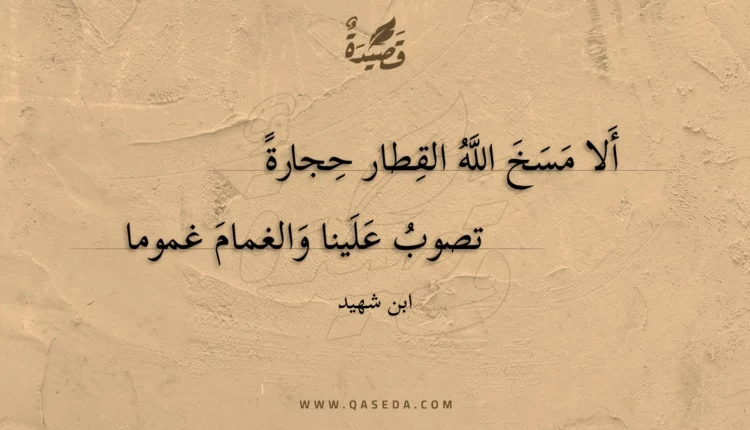 قَصِيدَةٌ
أَلا مَسَخَ اللَّهُ القِطار حِجارةً
تصوبُ عَلَينا وَالغمامَ غموما
ابن شهيد
WWW.QASEDA.COM